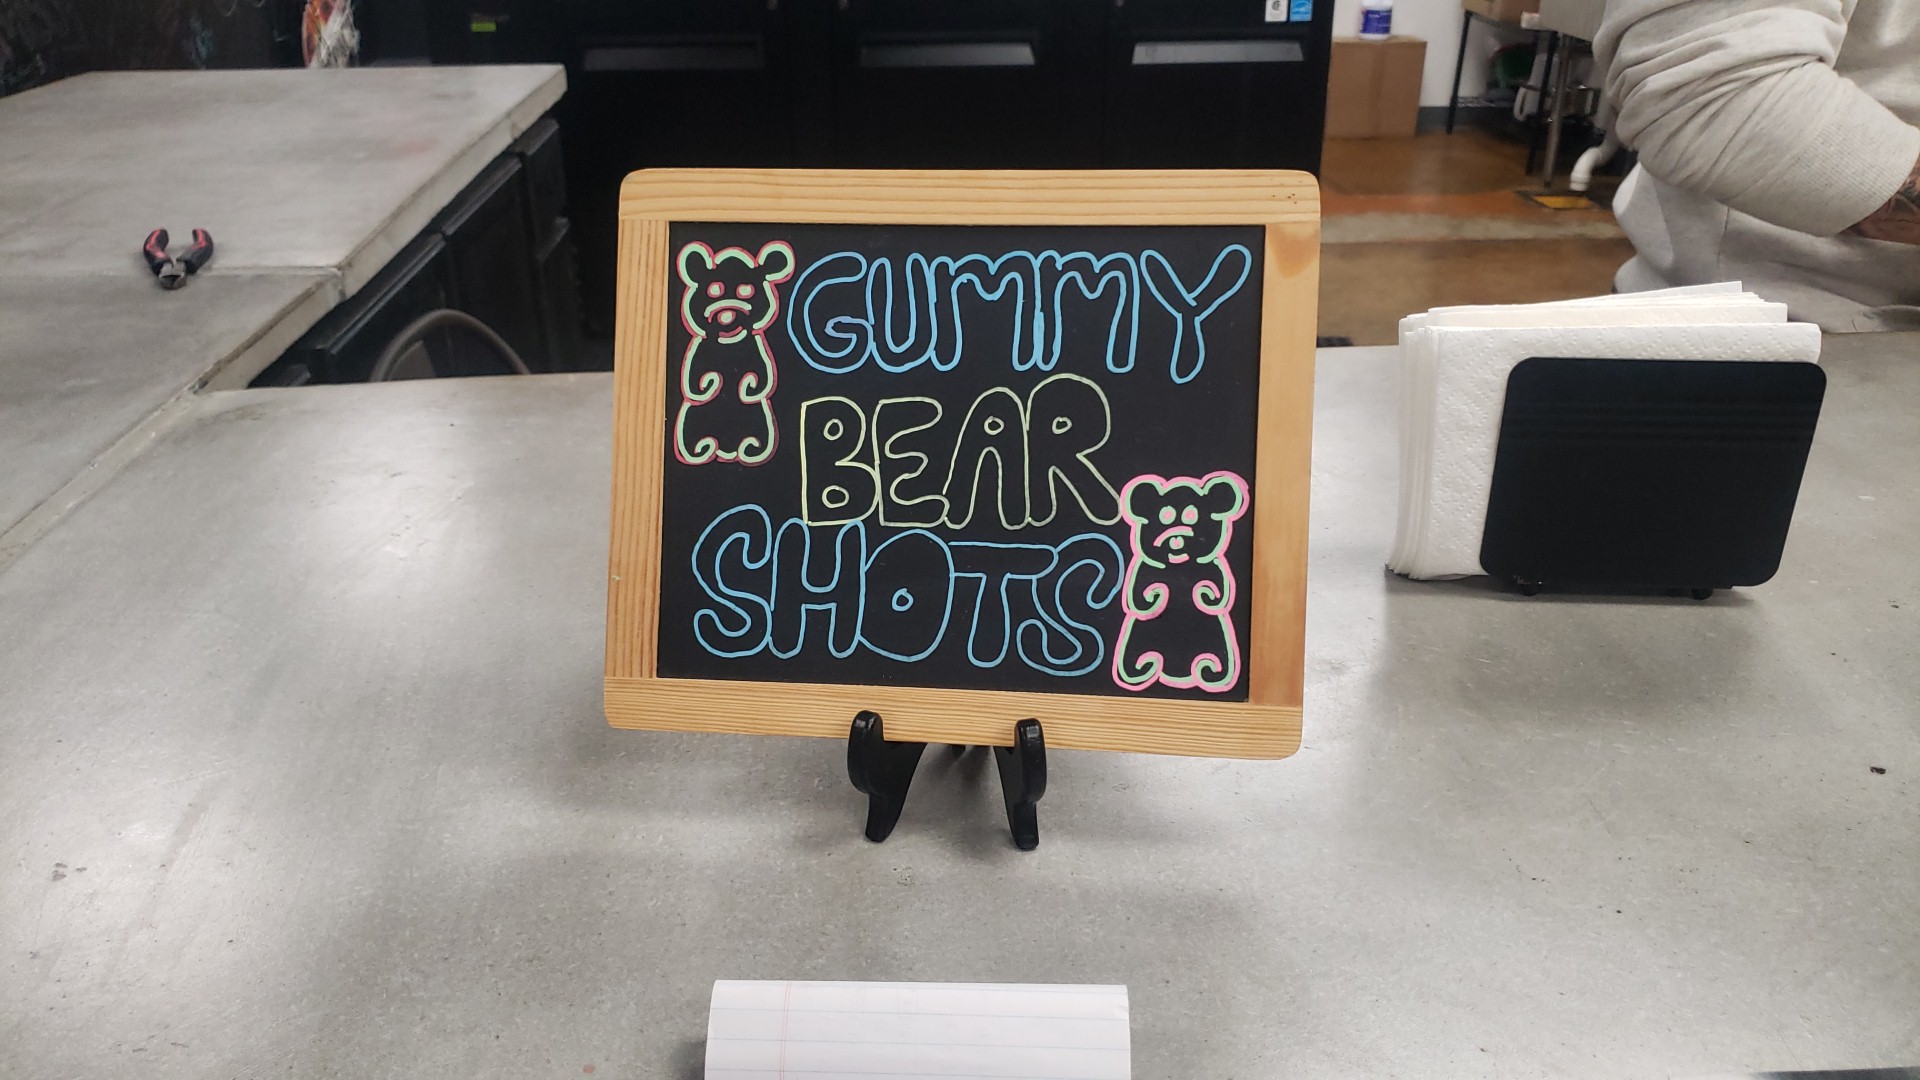 GUMMY
BEAR
SHOTS